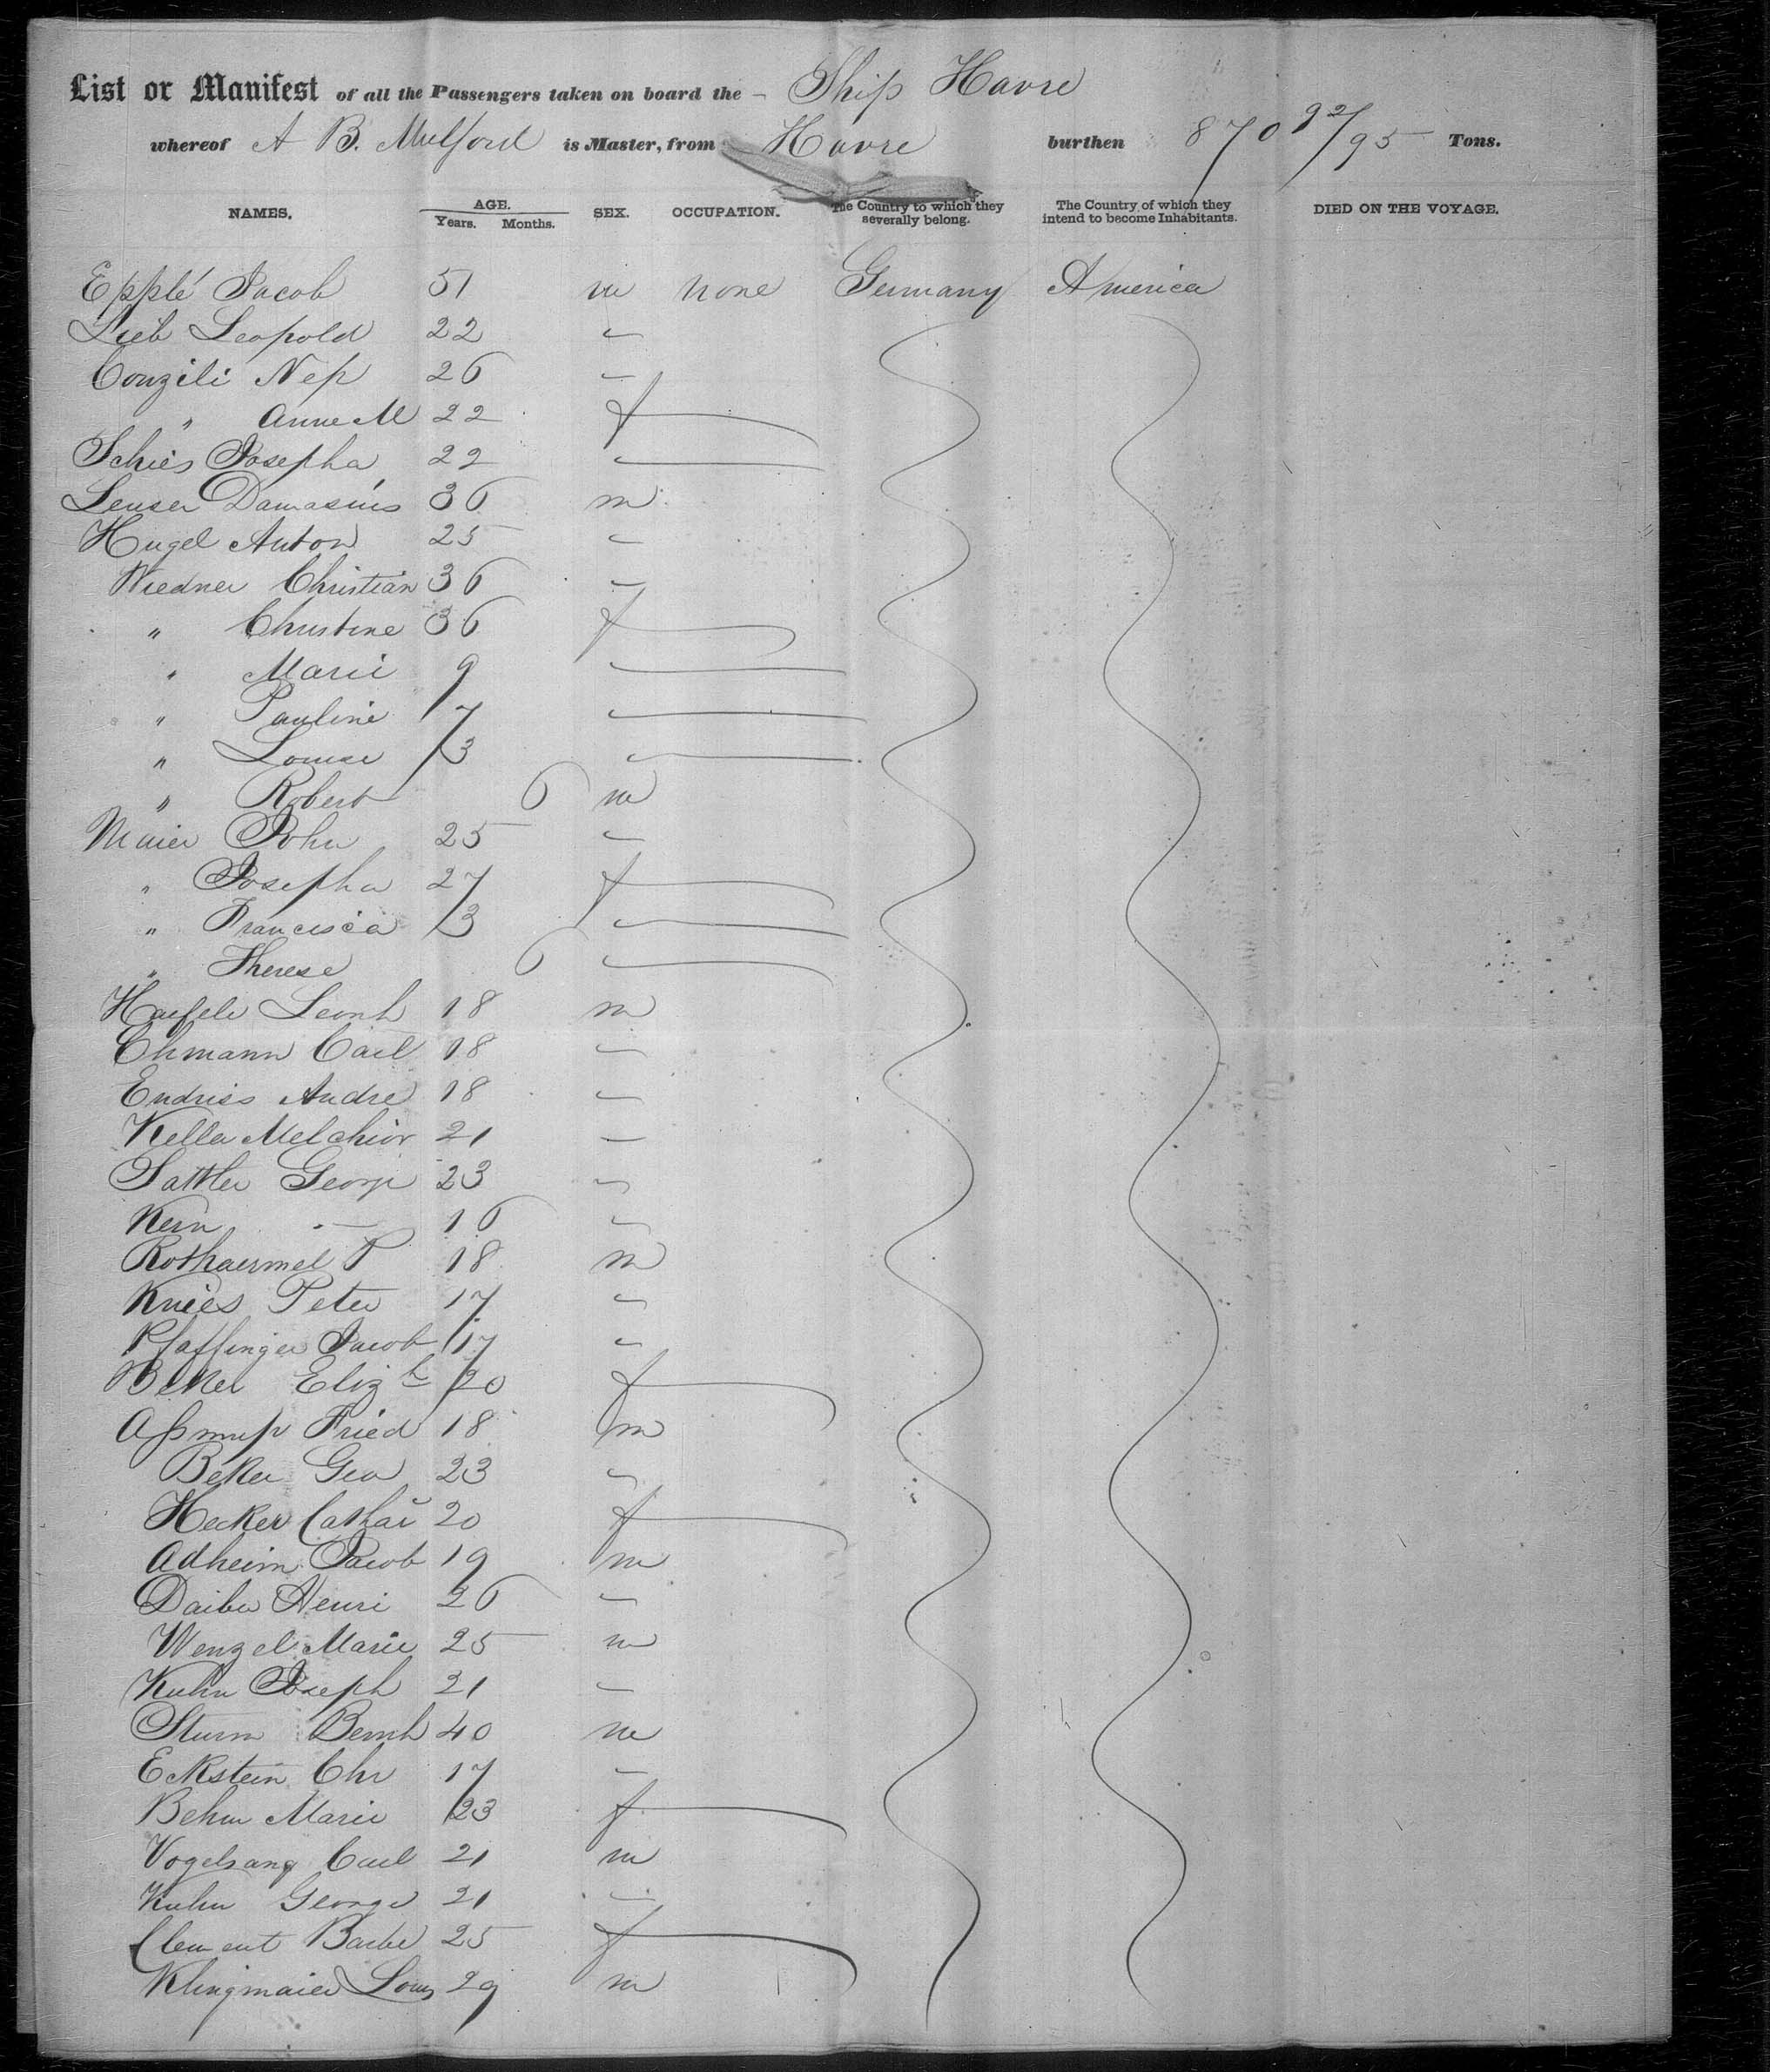 List or Manifest of all the Passengers taken on board the - Ship Havre
whereof A B. Mulford is Master, from Havre burthen 870 92/95 Tons.
NAMES. AGE. SEX. OCCUPATION. The Country to which they severally belong. The Country of which they intend to become Inhabitants. DIED ON THE VOYAGE.
Years. Months.
Epplé Jacob 51 m none Germany America
Lieb Leopold 22 -
Conzili Nep 26 -
" Anne M 22 f
Schies Josepha 22 -
Leuser Damasius 36 m
Hugel Anton 25 -
Wiedner Christian 36 -
" Christine 36 f
" Marie 9 -
" Pauline 7 -
" Louise 3 -
" Robert 6 m
Maier John 25 -
" Josepha 27 f
" Francisca 3 -
" Therese 6 -
Haefele Leonh 18 m
Ehmann Carl 18 -
Endriss Andre 18 -
Keller Melchior 21 -
Sattler George 23 -
Kern - 16 -
Rothaermel P 18 m
Knies Peter 17 -
Pfaffinger Jacob 17 -
Beker Eliz th 20 f
Aßmuß Fried 18 m
Beker Geo 23 -
Hecker Cathar 20 f
Adheim Jacob 19 m
Daiber Henri 26 -
Wenzel Marie 25 m
Kuhn Joseph 21 -
Sturm Bernh 40 m
Eckstein Chr 17 -
Behm Marie 23 f
Vogelsang Carl 21 m
Kuhn George 21 -
Clement Barbe 25 f
Klingmaier Louis 29 m